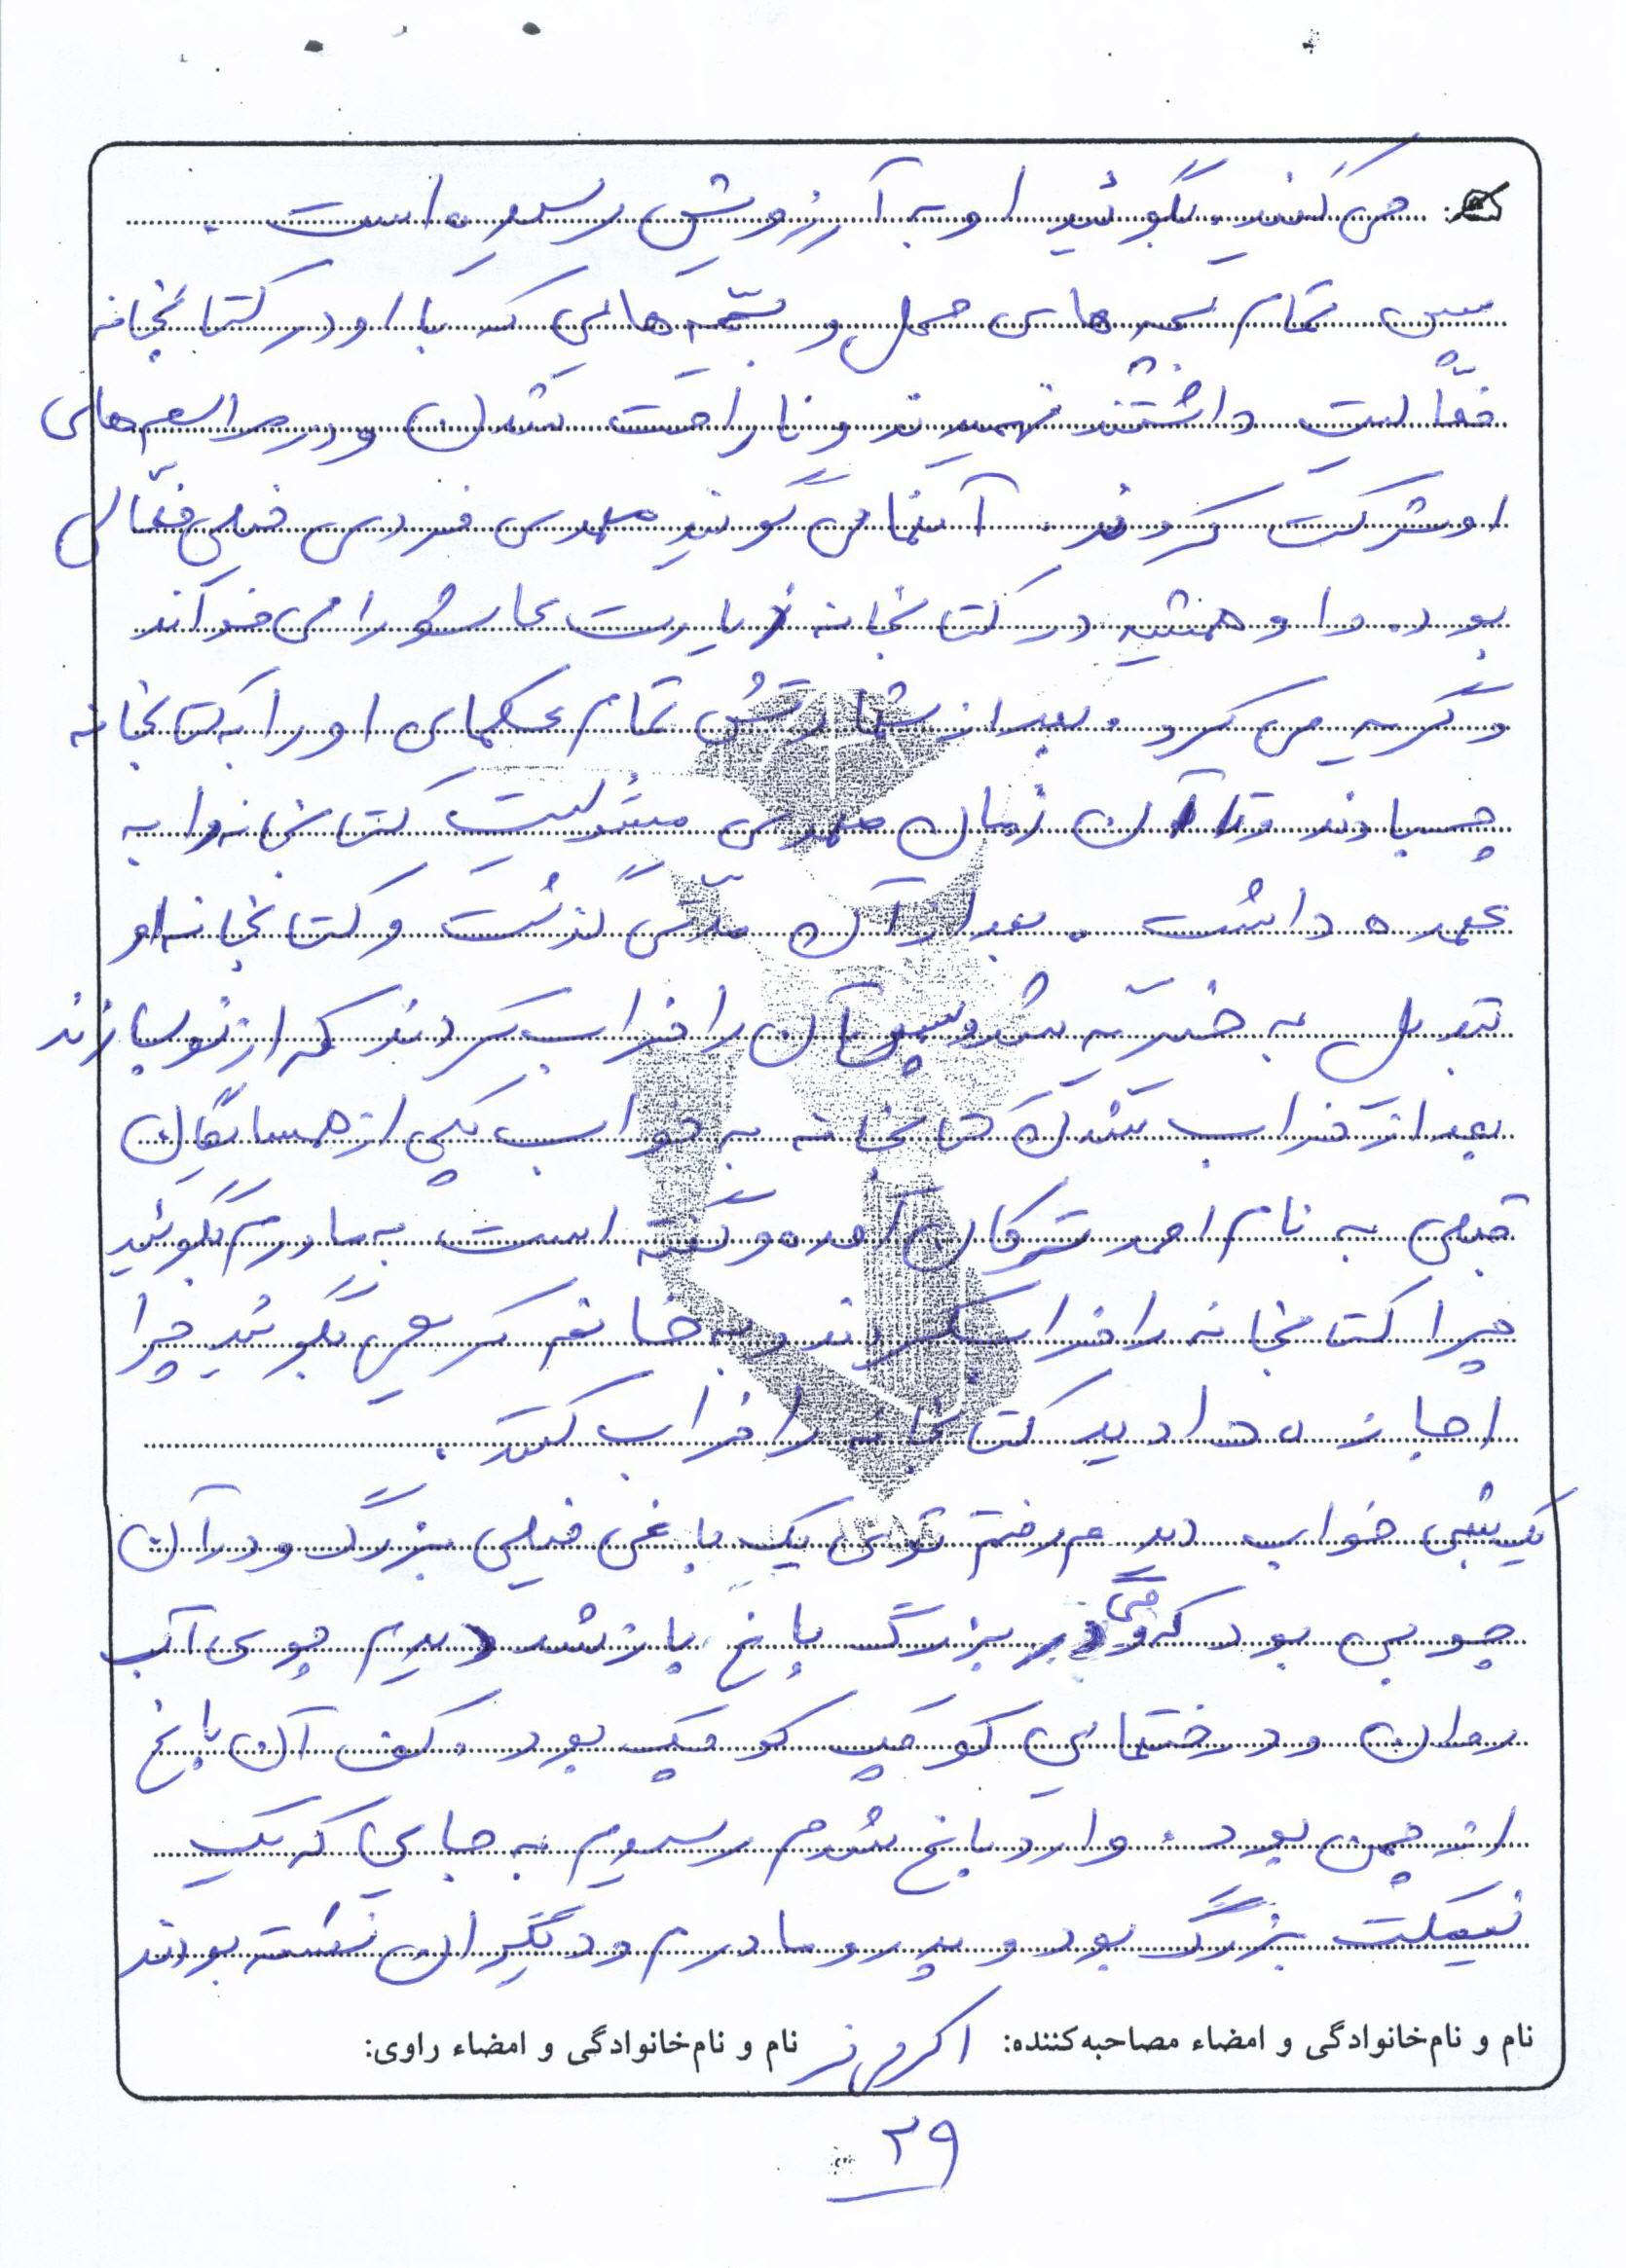 می کنند. بگوئید او به آرزویش رسیده است.
سپس تمام بچه های محل و بچّه هایی که با او در کتابخانه
فعّالیت داشتند فهمیدند و ناراحت شدن و در مراسم های
او شرکت کردند. آنها می گویند مهدی فردی خیلی فعّالی
بود. و او همیشه در کتابخانه زیارت عاشورا می خواند
و گریه می کرد. بعد از شهادتش تمام عکسهای او را به کتابخانه
چسباندند و تا آن زمان مهدی مسئولیت کتابخانه را به
عهده داشت. بعد از آن مدّتی گذشت و کتابخانه او
تبدیل به خیریّه شد و سپس آن را خراب کردند که از نو بسازند
بعد از خراب شدن کتابخانه به خواب یکی از همسایگان
قبلی به نام احمد ترکان آمده و گفته است به مادرم بگوئید
چرا کتابخانه را خراب کردند و به خانم کریمی بگوئید چرا
اجازه دادید کتابخانه را خراب کنند.
یک شبی خواب دیدم رفتم توی یک باغی خیلی بزرگ و در آن
چوبی بود که وقتی در بزرگ باغ باز شد دیدم جوی آب
روان و درختهایی کوچک کوچک بود. کف آن باغ
از چمن بود. وارد باغ شدم رسیدم به جایی که یک
نیمکت بزرگ بود و پدر و مادرم و دیگران نشسته بودند
نام و نام‌خانوادگی و امضاء مصاحبه‌کننده: نام و نام‌خانوادگی و امضاء راوی:
۲۹